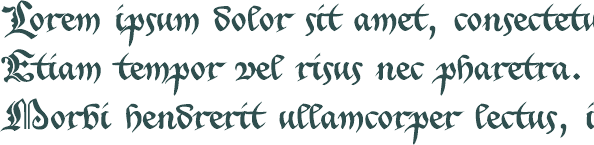 Lorem ipsum dolor sit amet, consectetu
Etiam tempor vel risus nec pharetra.
Morbi hendrerit ullamcorper lectus, i